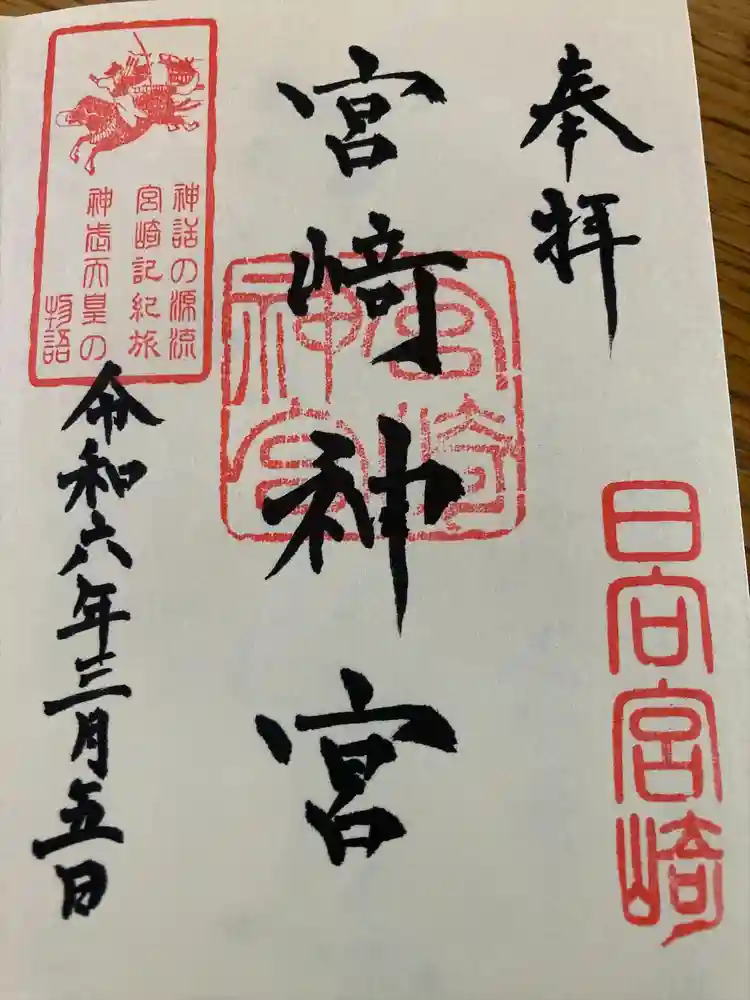 奉拝
日向宮崎
宮崎神宮
宮崎
神宮
神話の源流
宮崎記紀旅
神武天皇の
物語
令和六年三月五日